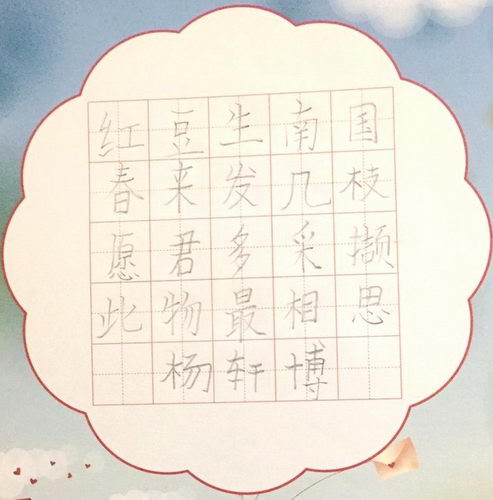 红豆生南国
春来发几枝
愿君多采撷
此物最相思
杨轩博